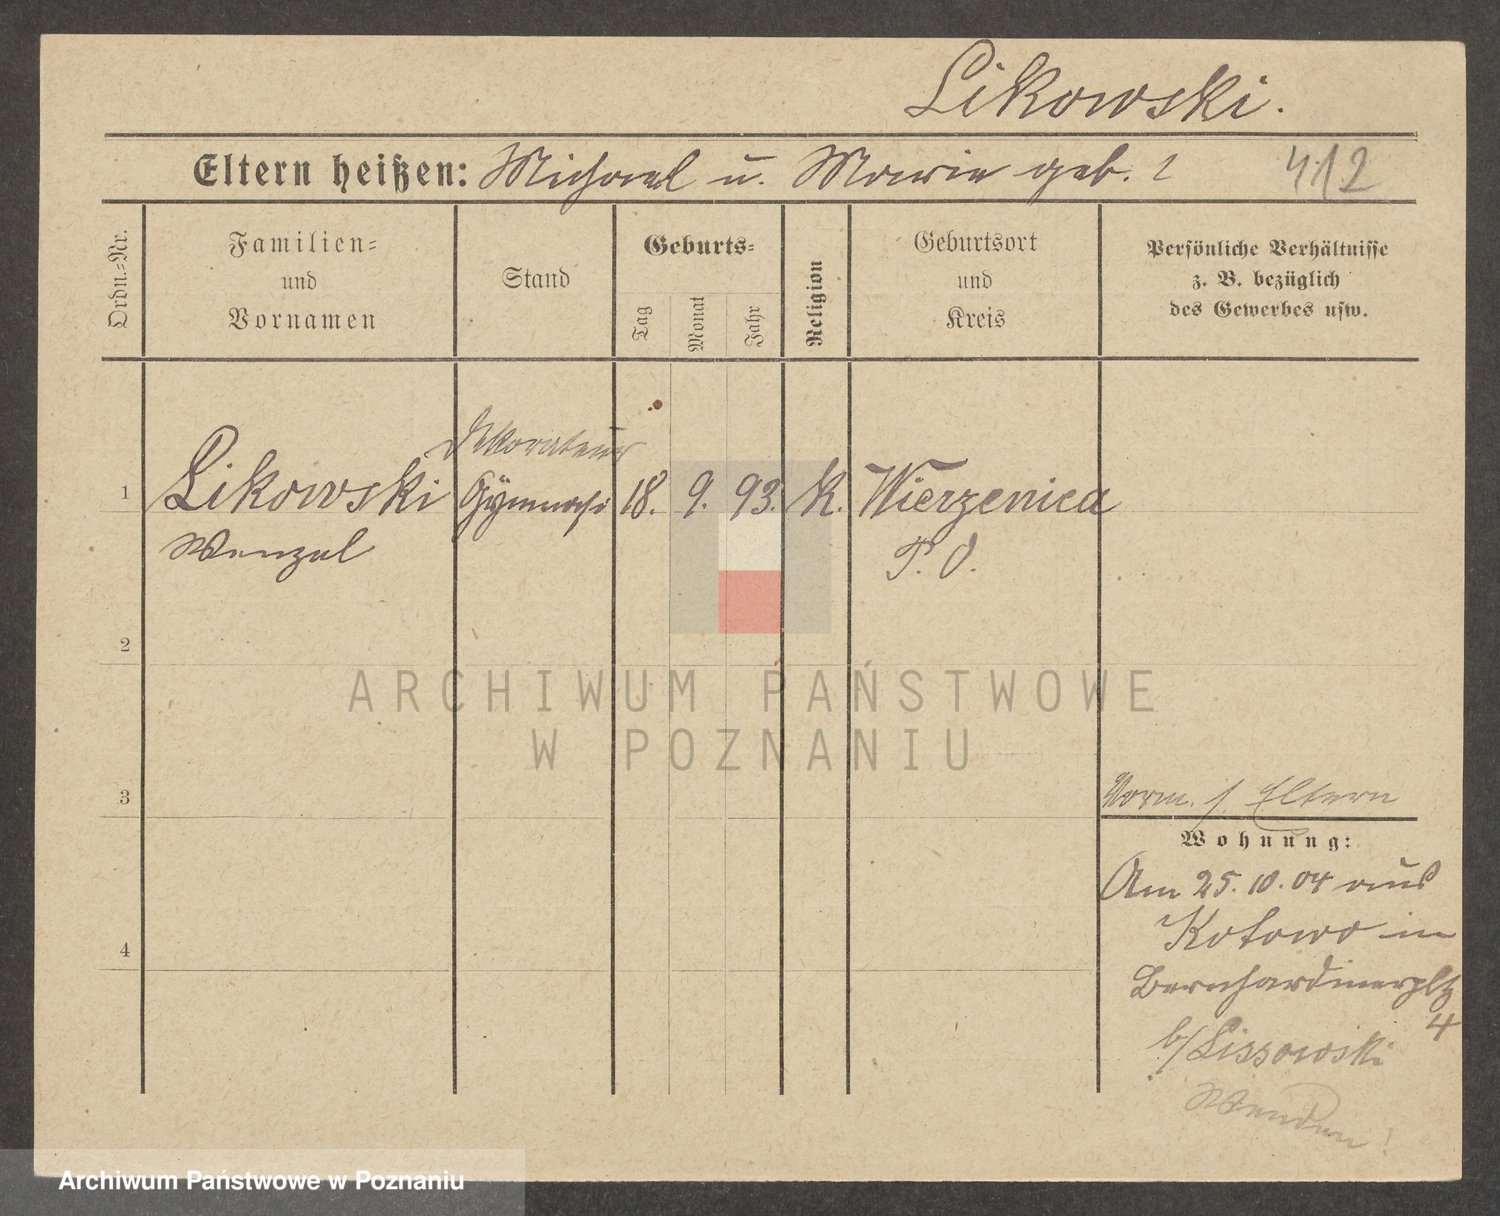 Likowski.
Eltern heißen: Michael u. Marie geb. ? 412
Ordn.=Nr.
Familien=
und
Vornamen
Stand
Geburts=
Tag
Monat
Jahr
Religion
Geburtsort
und
Kreis
Persönliche Verhältnisse
z. B. bezüglich
des Gewerbes usw.
Dekorateur
1 Likowski Gymnasi 18. 9. 93. K. Wierzenica
Wenzel P. O.
2
ARCHIWUM PAŃSTWOWE
W POZNANIU
3
Vorm. f. Eltern
Wohnung:
Am 25. 10. 04 aus
Kotowo in
4
Bernhardinerpltz
4
b/Lissowski
Wenden!
Archiwum Państwowe w Poznaniu